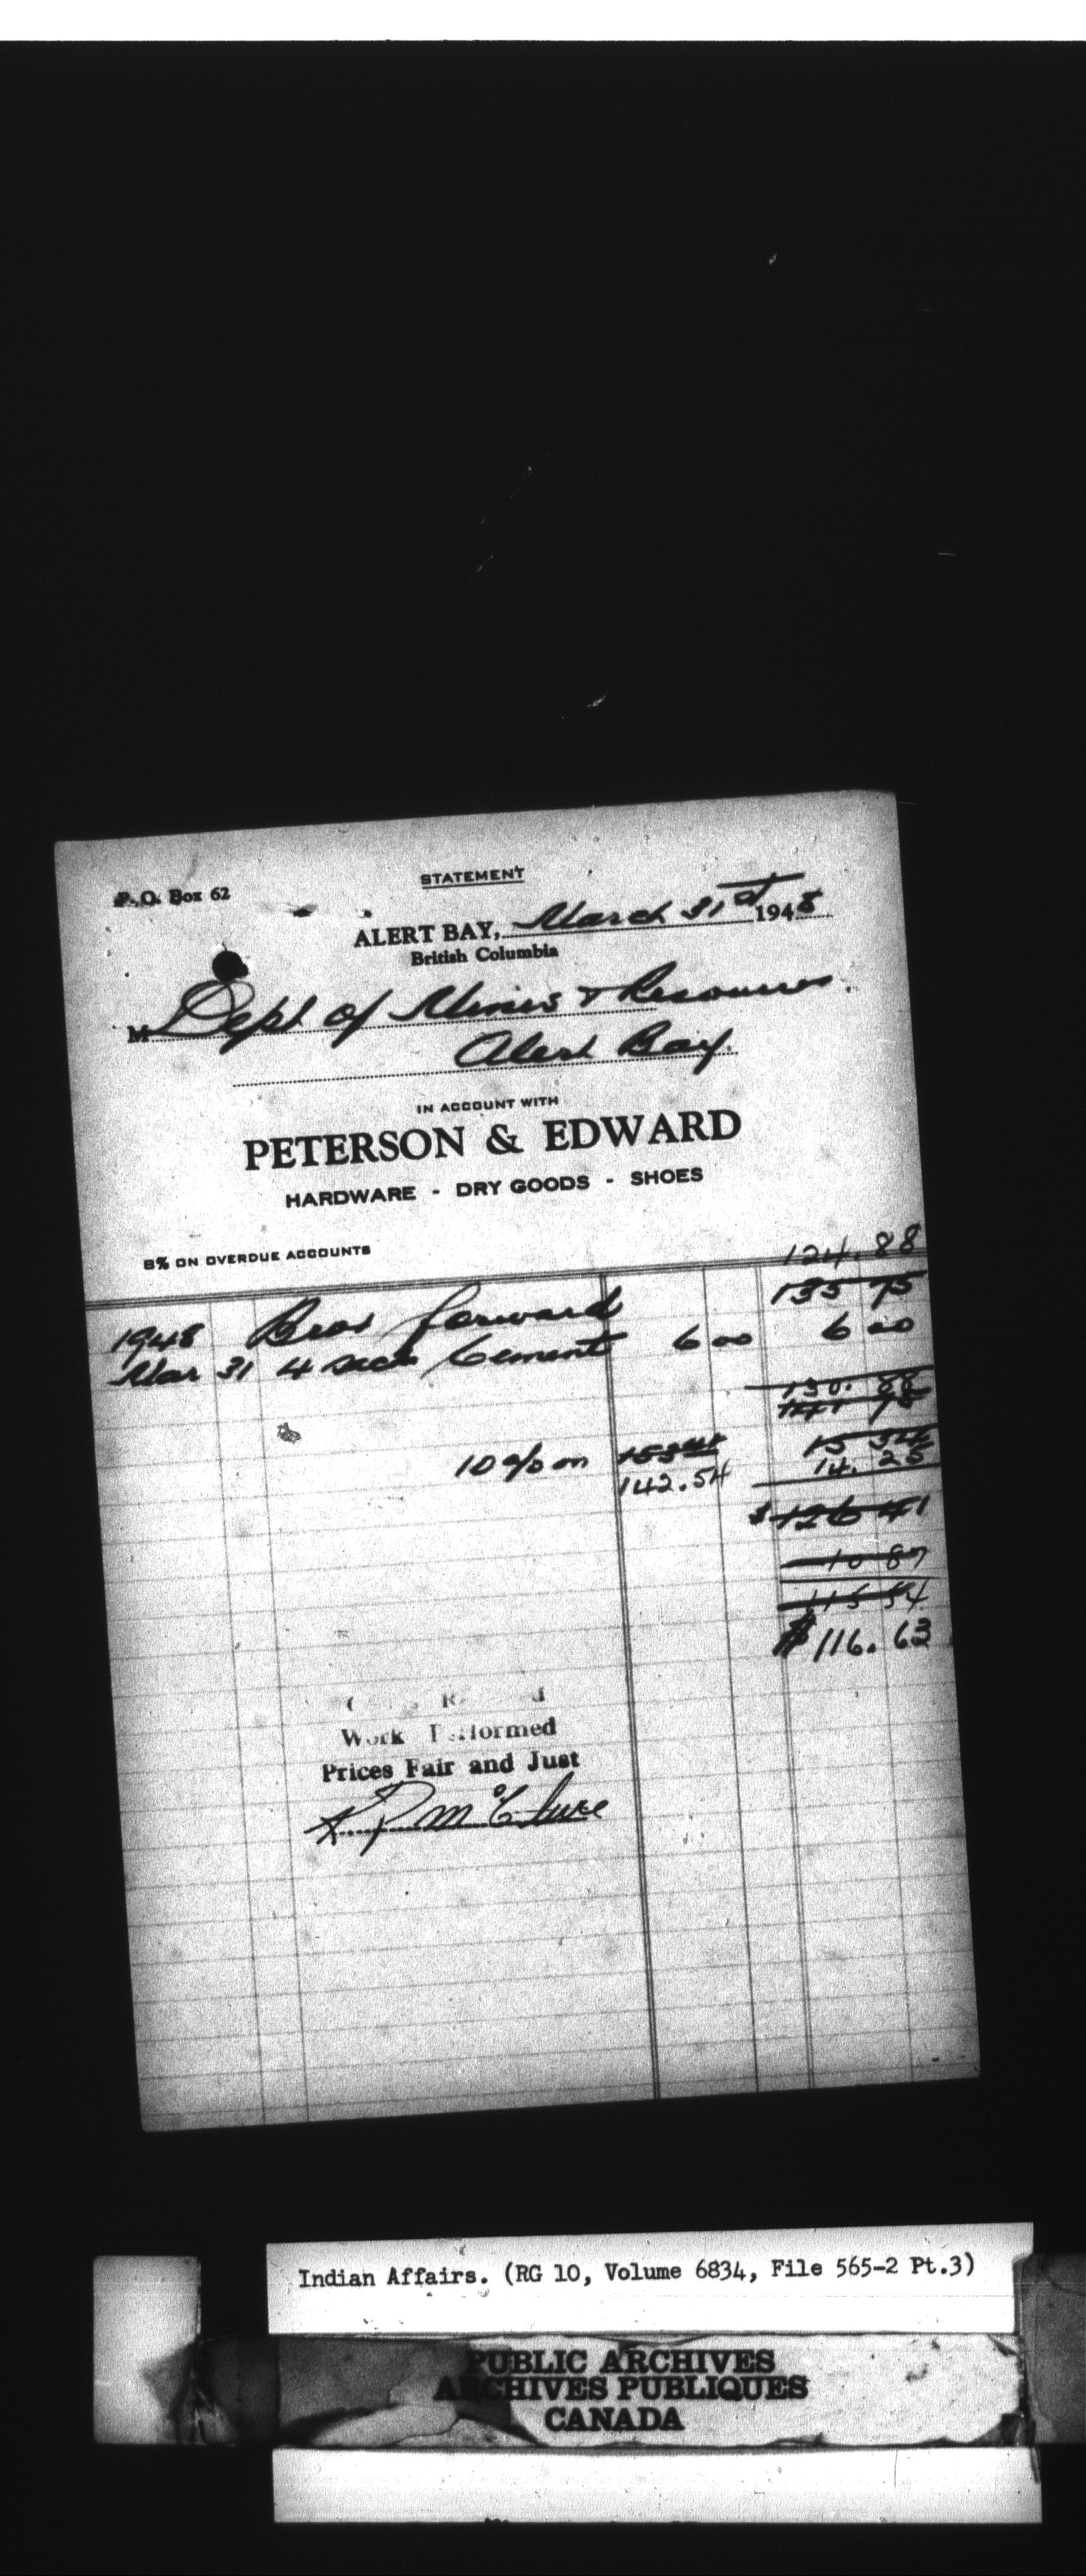 STATEMENT
P.O. Box 62
ALERT BAY, March 31st 1948
British Columbia
M Dept of Mines & Resources.
Alert Bay.
IN ACCOUNT WITH
PETERSON & EDWARD
HARDWARE - DRY GOODS - SHOES
8% ON OVERDUE ACCOUNTS
124.88
1948 forward 135 75
Mar 31 4 sack Cement 6 00 6 00
130.88
141 75
10% on 153 41 15 34
142.54 14.25
$ 126 41
10 87
115 54
$116.63
Work Performed
Prices Fair and Just
Indian Affairs. (RG 10, Volume 6834, File 565-2 Pt.3)
PUBLIC ARCHIVES
ARCHIVES PUBLIQUES
CANADA